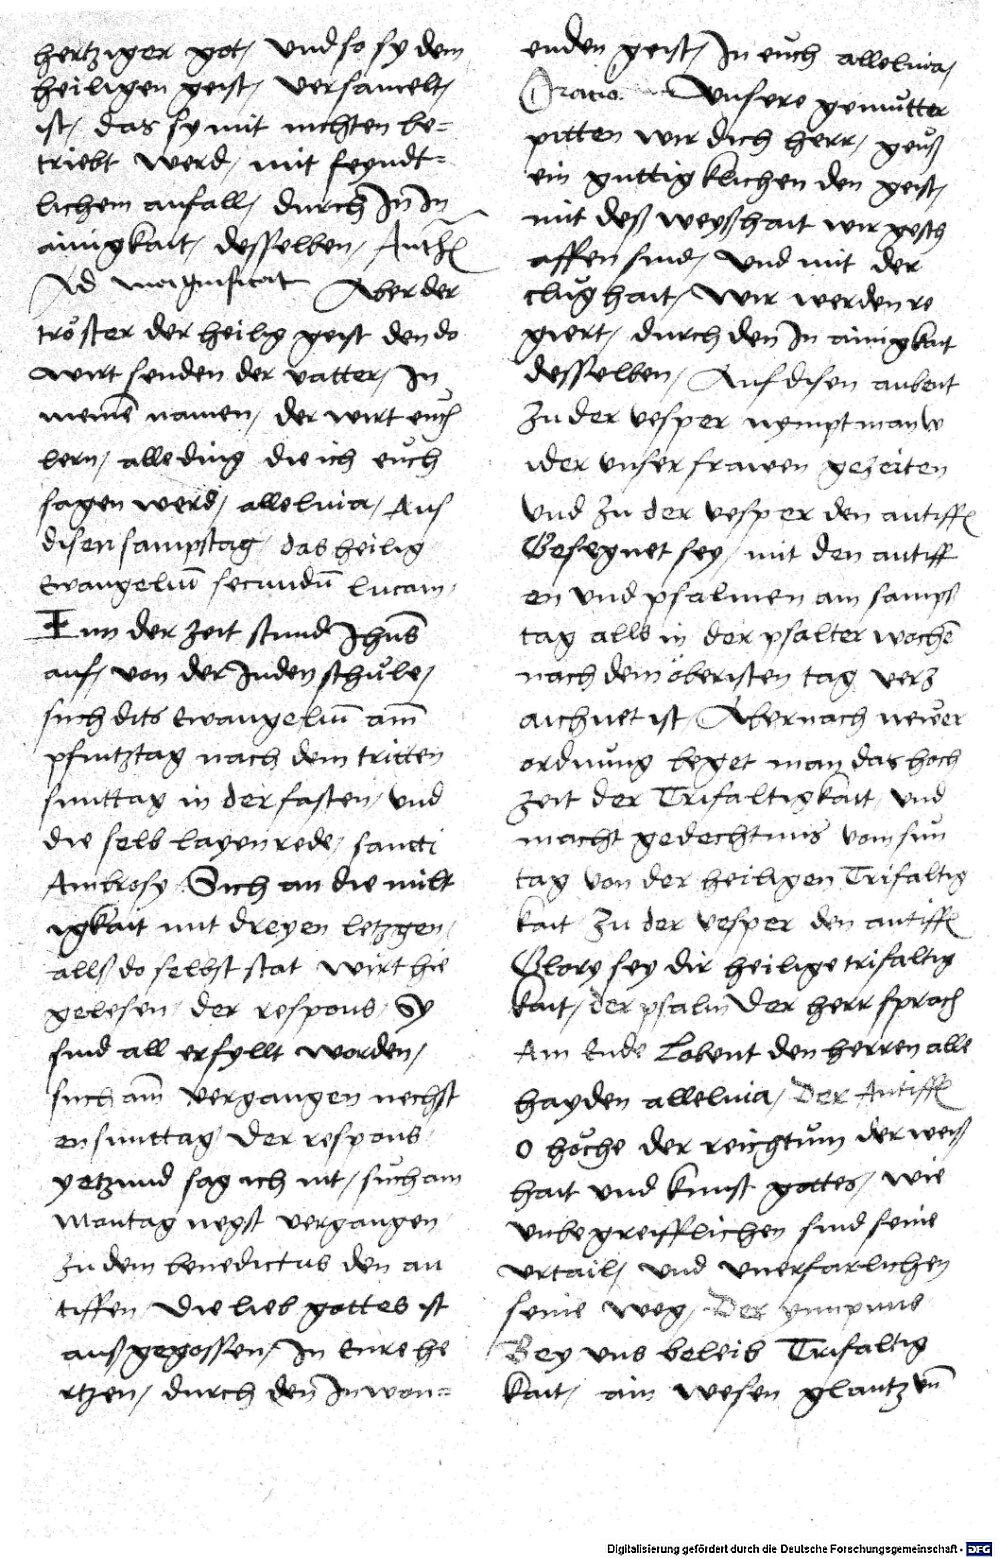 hertziger got, und so sy dem
heiligen geist, versamelt,
ist, das sy mit nichten be=
triebt werd, mit feyndt=
lichem anfall, durch In In
ainigkait, desselben, Anth
Ad magnificat Aber der
tröster der heilig geist den do
wirt senden der vatter, In
meinē namen, der wirt euch
lern, alle ding die ich euch
sagen werd, alleluia, Auf
disen sampstag das heilig
Ewangeliū secundū lucam,
Inn der zeit stund Jhus
auf, von der Juden schule,
such dits Ewangeliū am
pfintztag nach dem tritten
sunttag in der fasten, und
die selb layen rede, sancti
Ambrosy Sich an die milt
igkait mit dreyen letzgen,
alls do selbst stat wirt hie
gelesen, der respons, Sy
sind all erfyllt worden,
such am vergangen nechst
en sunttag, Der respons
yetzund sag ich nit, such am
Montag negst vergangen
zu dem benedictus den an
tiffen, Die lieb gottes ist
auß gegossen, In Eure he
rtzen, durch den Inwon=
enden geist, In euch alleluia,
Oracio Unsere gemütter
pitten wir dich herr, geuß
ein guttigklichen den geist,
mit deß weyßhait wir gesch
affen sind, und mit der
clughait, wir werden re
giert, durch den In ainigkait
desselben, Auf disen aubent
zu der vesper nympt man w
ider unser frawen gezeiten
und zu der vesper den antiff
Gesegnet sey, mit den antiff
en und psalmen am samps
tag alls in der psalter wochē
nach dem öberisten tag verz
aichnet ist, Aber nach newer
ordnung beget man das hoch
zeit der Trifaltigkait, und
macht gedechtnus vom sun
tag von der heiligen Trifaltig
kait zu der vesper den antiff
Glory sey dir heilige trifaltig
kait, der psalm Der herr sprach
Am Ende Lobent den herren alle
hayden alleluia, Der Antiff
O höche der reichtum der weiß
hait und kunst gottes, wie
unbegreifflichen sind seine
urtail, und unerfarlichen
seine weg, Der ympnus
Bey uns beleib Trifaltig
kait, ain wesen glantz un
Digitalisierung gefördert durch die Deutsche Forschungsgemeinschaft - DFG